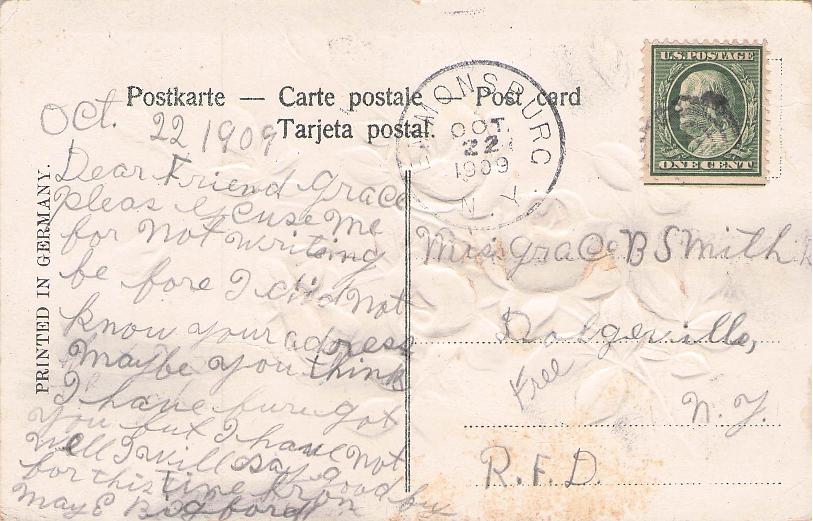 Postkarte — Carte postale — Post card
Tarjeta postal.
PRINTED IN GERMANY.
U.S. POSTAGE
ONE CENT
OCT.
22
1909
N.Y.
Oct. 22 1909
Dear Friend Grace
pleas excuse me
for not writing
be fore I did not
know your adress
maybe you think
I have furu got
you but I have not
well I will say good by
for this time from
May E Bigford
Miss Grace B Smith
Dolgeville,
Free
N. Y.
R. F. D.